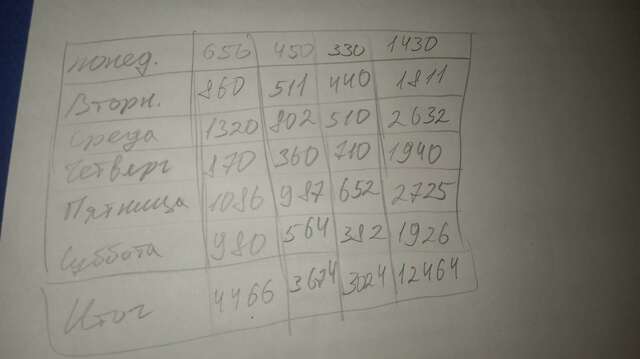 понед. 656 450 330 1430
Вторн. 860 511 440 1811
Среда 1320 802 510 2632
Четверг 870 360 710 1940
Пятница 1086 987 652 2725
Суббота 980 564 382 1926
Итог 4466 3674 3024 12464